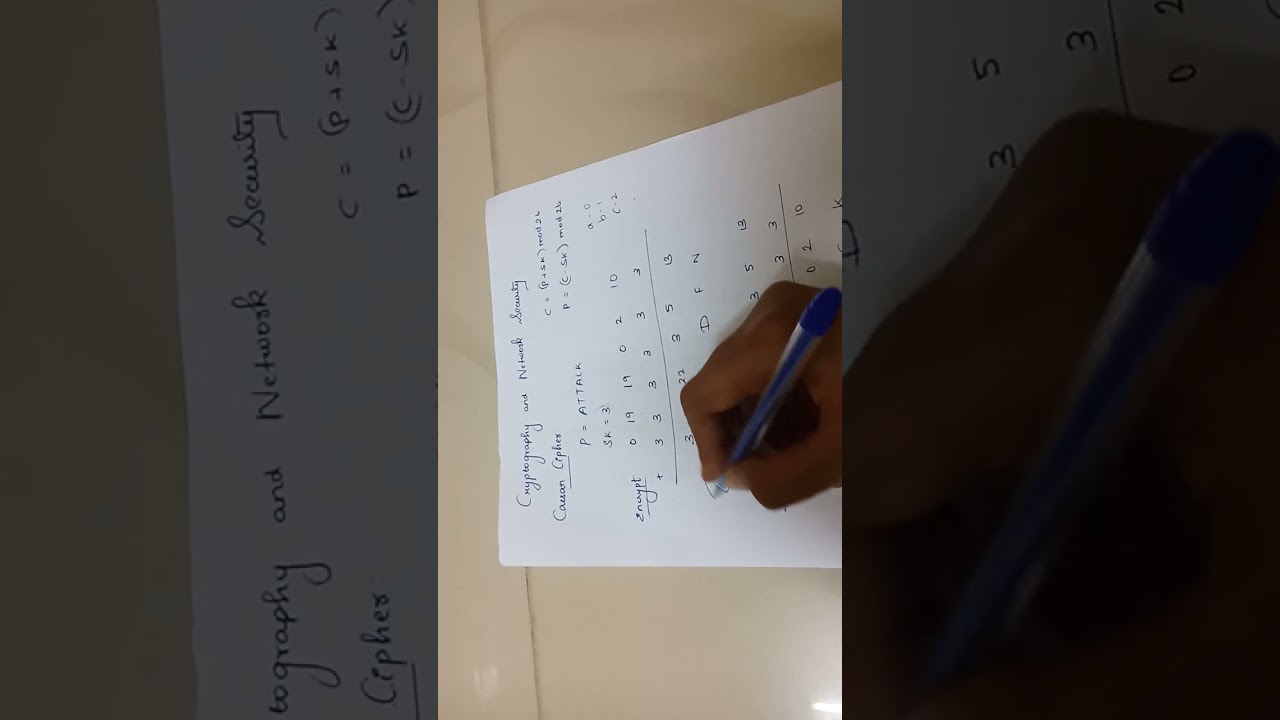 Cryptography and Network Security
Caesar Cipher
C = (P+SK) mod 26
P = (C-SK) mod 26
P = ATTACK
SK = 3
a-0
b-1
c-2
Encrypt
0 19 19 0 2 10
+ 3 3 3 3 3 3
3 22 3 5 13
D F N
3 5 13
3 3
0 2 10
K